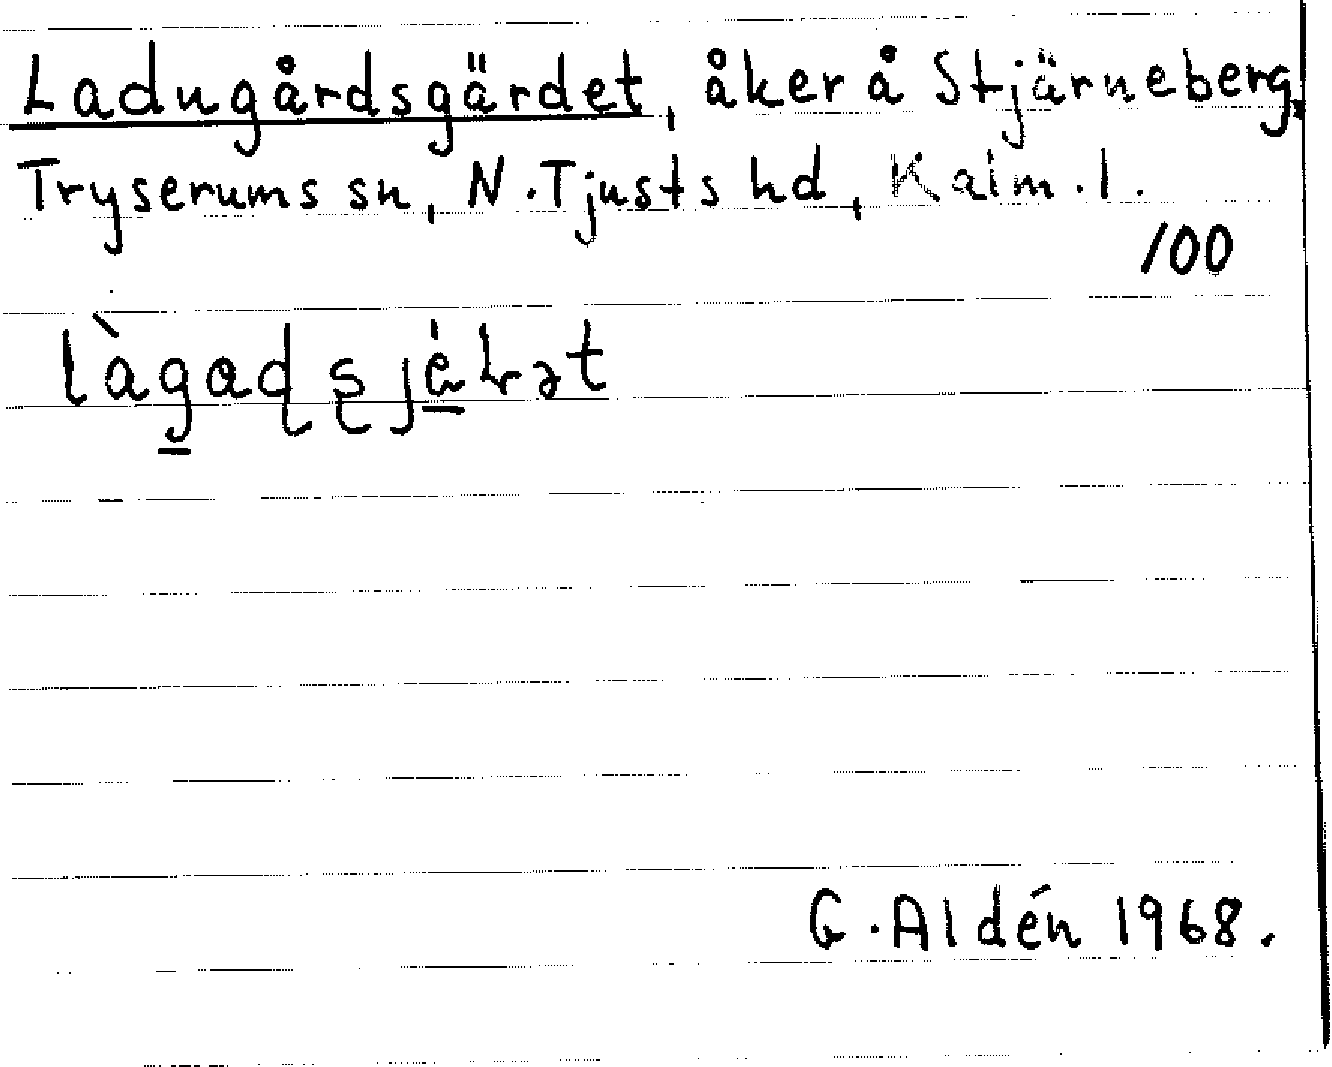 Ladugårdsgärdet, åker å Stjärneberg,
Tryserums sn, N. Tjusts hd, Kalm. l.
100
G. Aldén 1968.